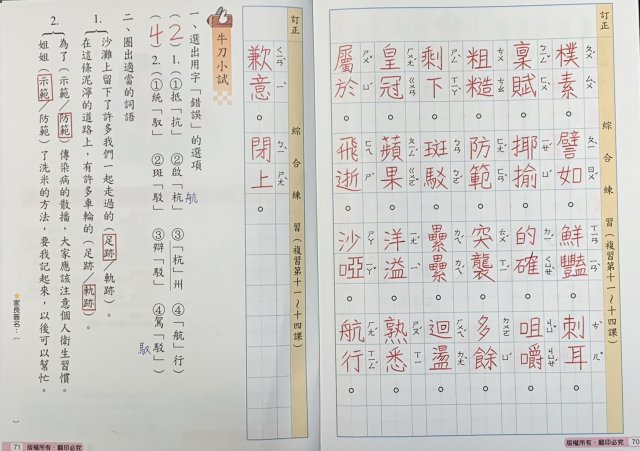 訂正　綜合練習(複習第十一～十四課)
樸素。譬如。鮮豔。刺耳。
稟賦。揶揄。的確。咀嚼。
粗糙。防範。突襲。多餘。
剩下。斑駁。纍纍。迴盪。
皇冠。蘋果。洋溢。熟悉。
屬於。飛逝。沙啞。航行。
版權所有・翻印必究 70
訂正　綜合練習(複習第十一～十四課)
歉意。閉上。
牛刀小試
一、選出用字「錯誤」的選項
(2)1.(①抵「抗」 ②啟「杭」 ③「杭」州 ④「航」行)
航
(4)2.(①統「馭」 ②斑「駁」 ③辯「駁」 ④駕「駁」)
馭
二、圈出適當的詞語
1. 沙灘上留下了許多我們一起走過的(足跡/軌跡)。
在這條泥濘的道路上，有許多車輪的(足跡/軌跡)。
2. 為了(示範/防範)傳染病的散播，大家應該注意個人衛生習慣。
姐姐(示範/防範)了洗米的方法，要我記起來，以後可以幫忙。
★家長簽名：(　)
71 版權所有・翻印必究